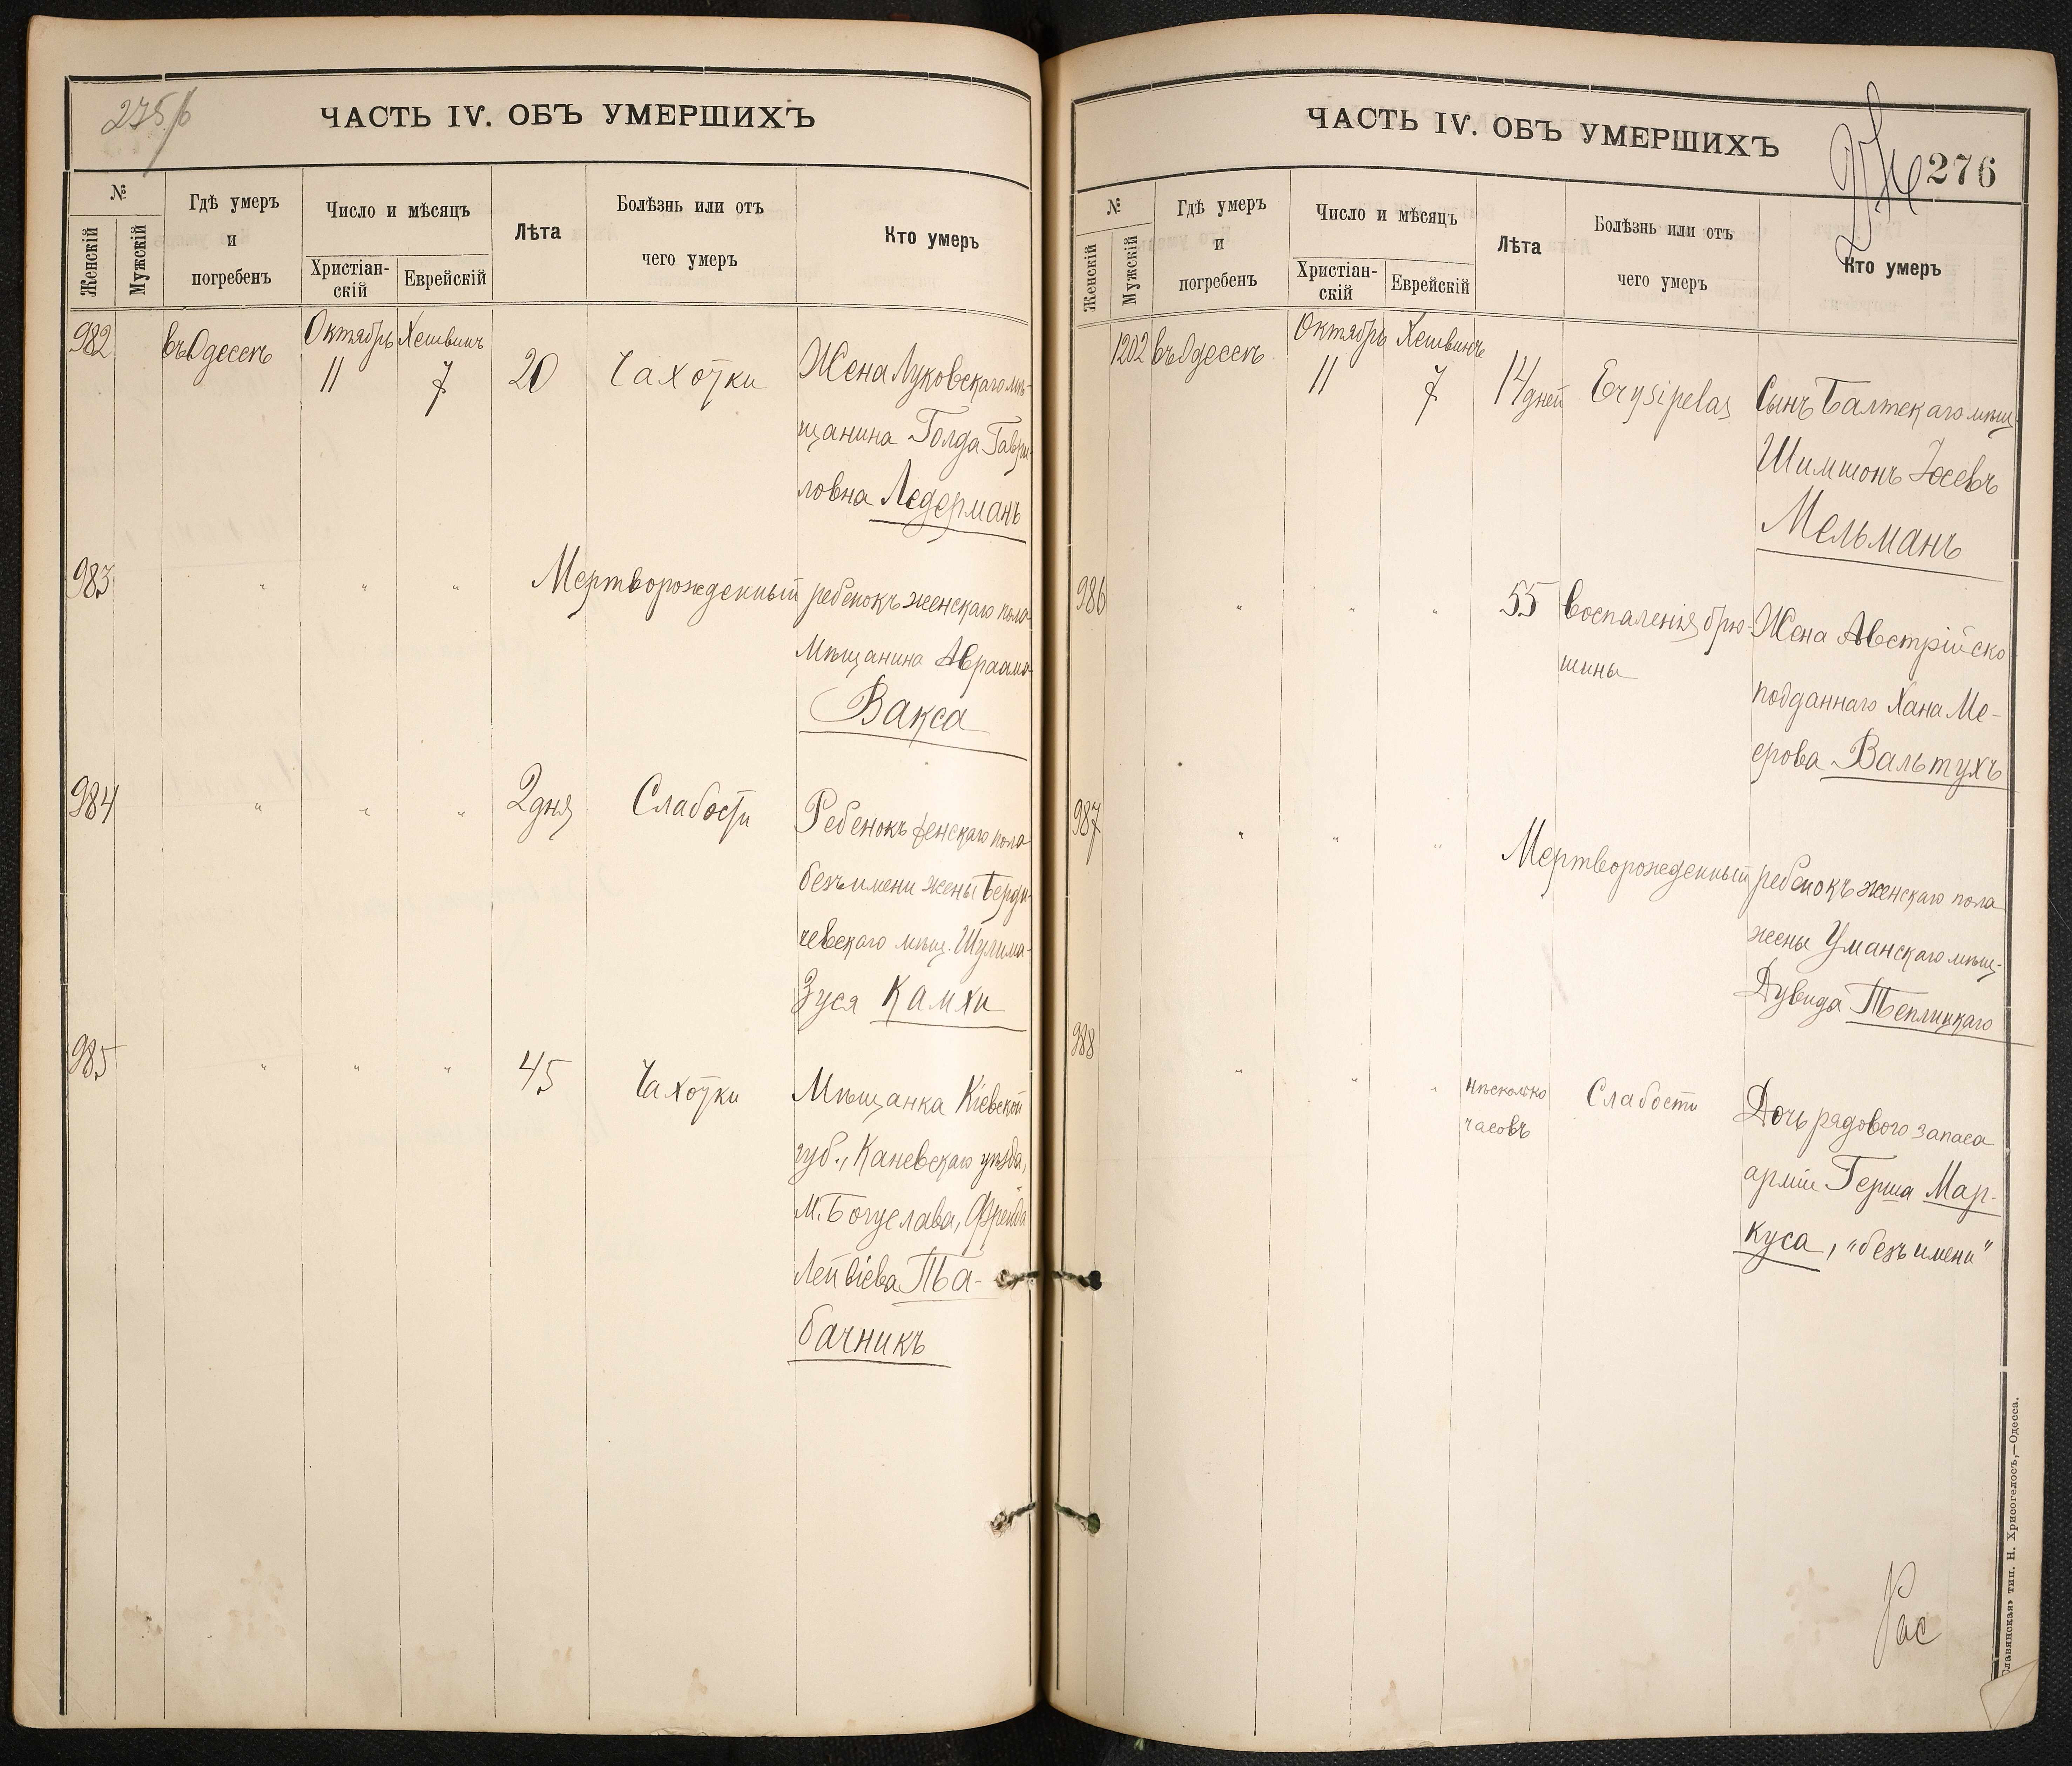 275/б
ЧАСТЬ IV. ОБЪ УМЕРШИХЪ
№
Женскій
Мужскій
Гдѣ умеръ
и
погребенъ
Число и мѣсяцъ
Христіан-
скій
Еврейскій
Лѣта
Болѣзнь или отъ
чего умеръ
Кто умеръ
982
въ Одессѣ
Октябрь Хешвинъ
11
7
20
Чахотки
Жена Луковскаго мѣ-
щанина Голда Гаври-
ловна Ледерманъ
983
" " "
Мертворожденный ребенокъ женскаго пола
Мѣщанина Авраама
Вакса
984
" " "
2 дня
Слабости
Ребенокъ женскаго пола
безъ имени жены Берди-
чевскаго мѣщ. Шулима-
Зуся Камхи
985
" " "
45
Чахотки
Мѣщанка Кіевской
губ., Каневскаго уѣзда,
М. Богуслава, Фрейда
Лейбіева Та-
бачникъ
ЧАСТЬ IV. ОБЪ УМЕРШИХЪ
276
№
Женскій
Мужскій
Гдѣ умеръ
и
погребенъ
Число и мѣсяцъ
Христіан-
скій
Еврейскій
Лѣта
Болѣзнь или отъ
чего умеръ
Кто умеръ
1202
въ Одессѣ
Октябрь Хешвинъ
11
7
14 дней
Erysipelas
Сынъ Балтскаго мѣщ.
Шимшонъ Хаевъ
Мельманъ
986
" " "
55
воспаленія брю-
шины
Жена Австрійско
подданнаго Хана Ме-
ерова Вальтухъ
987
" " "
Мертворожденный ребенокъ женскаго пола
жены Уманскаго мѣщ.
Дувида Теплицкаго
988
" " "
нѣсколько
часовъ
Слабости
Дочь рядового запаса
арміи Герша Мар-
куса, "безъ имени"
Рас
Славянская» тип. Н. Хрисогелосъ,—Одесса.